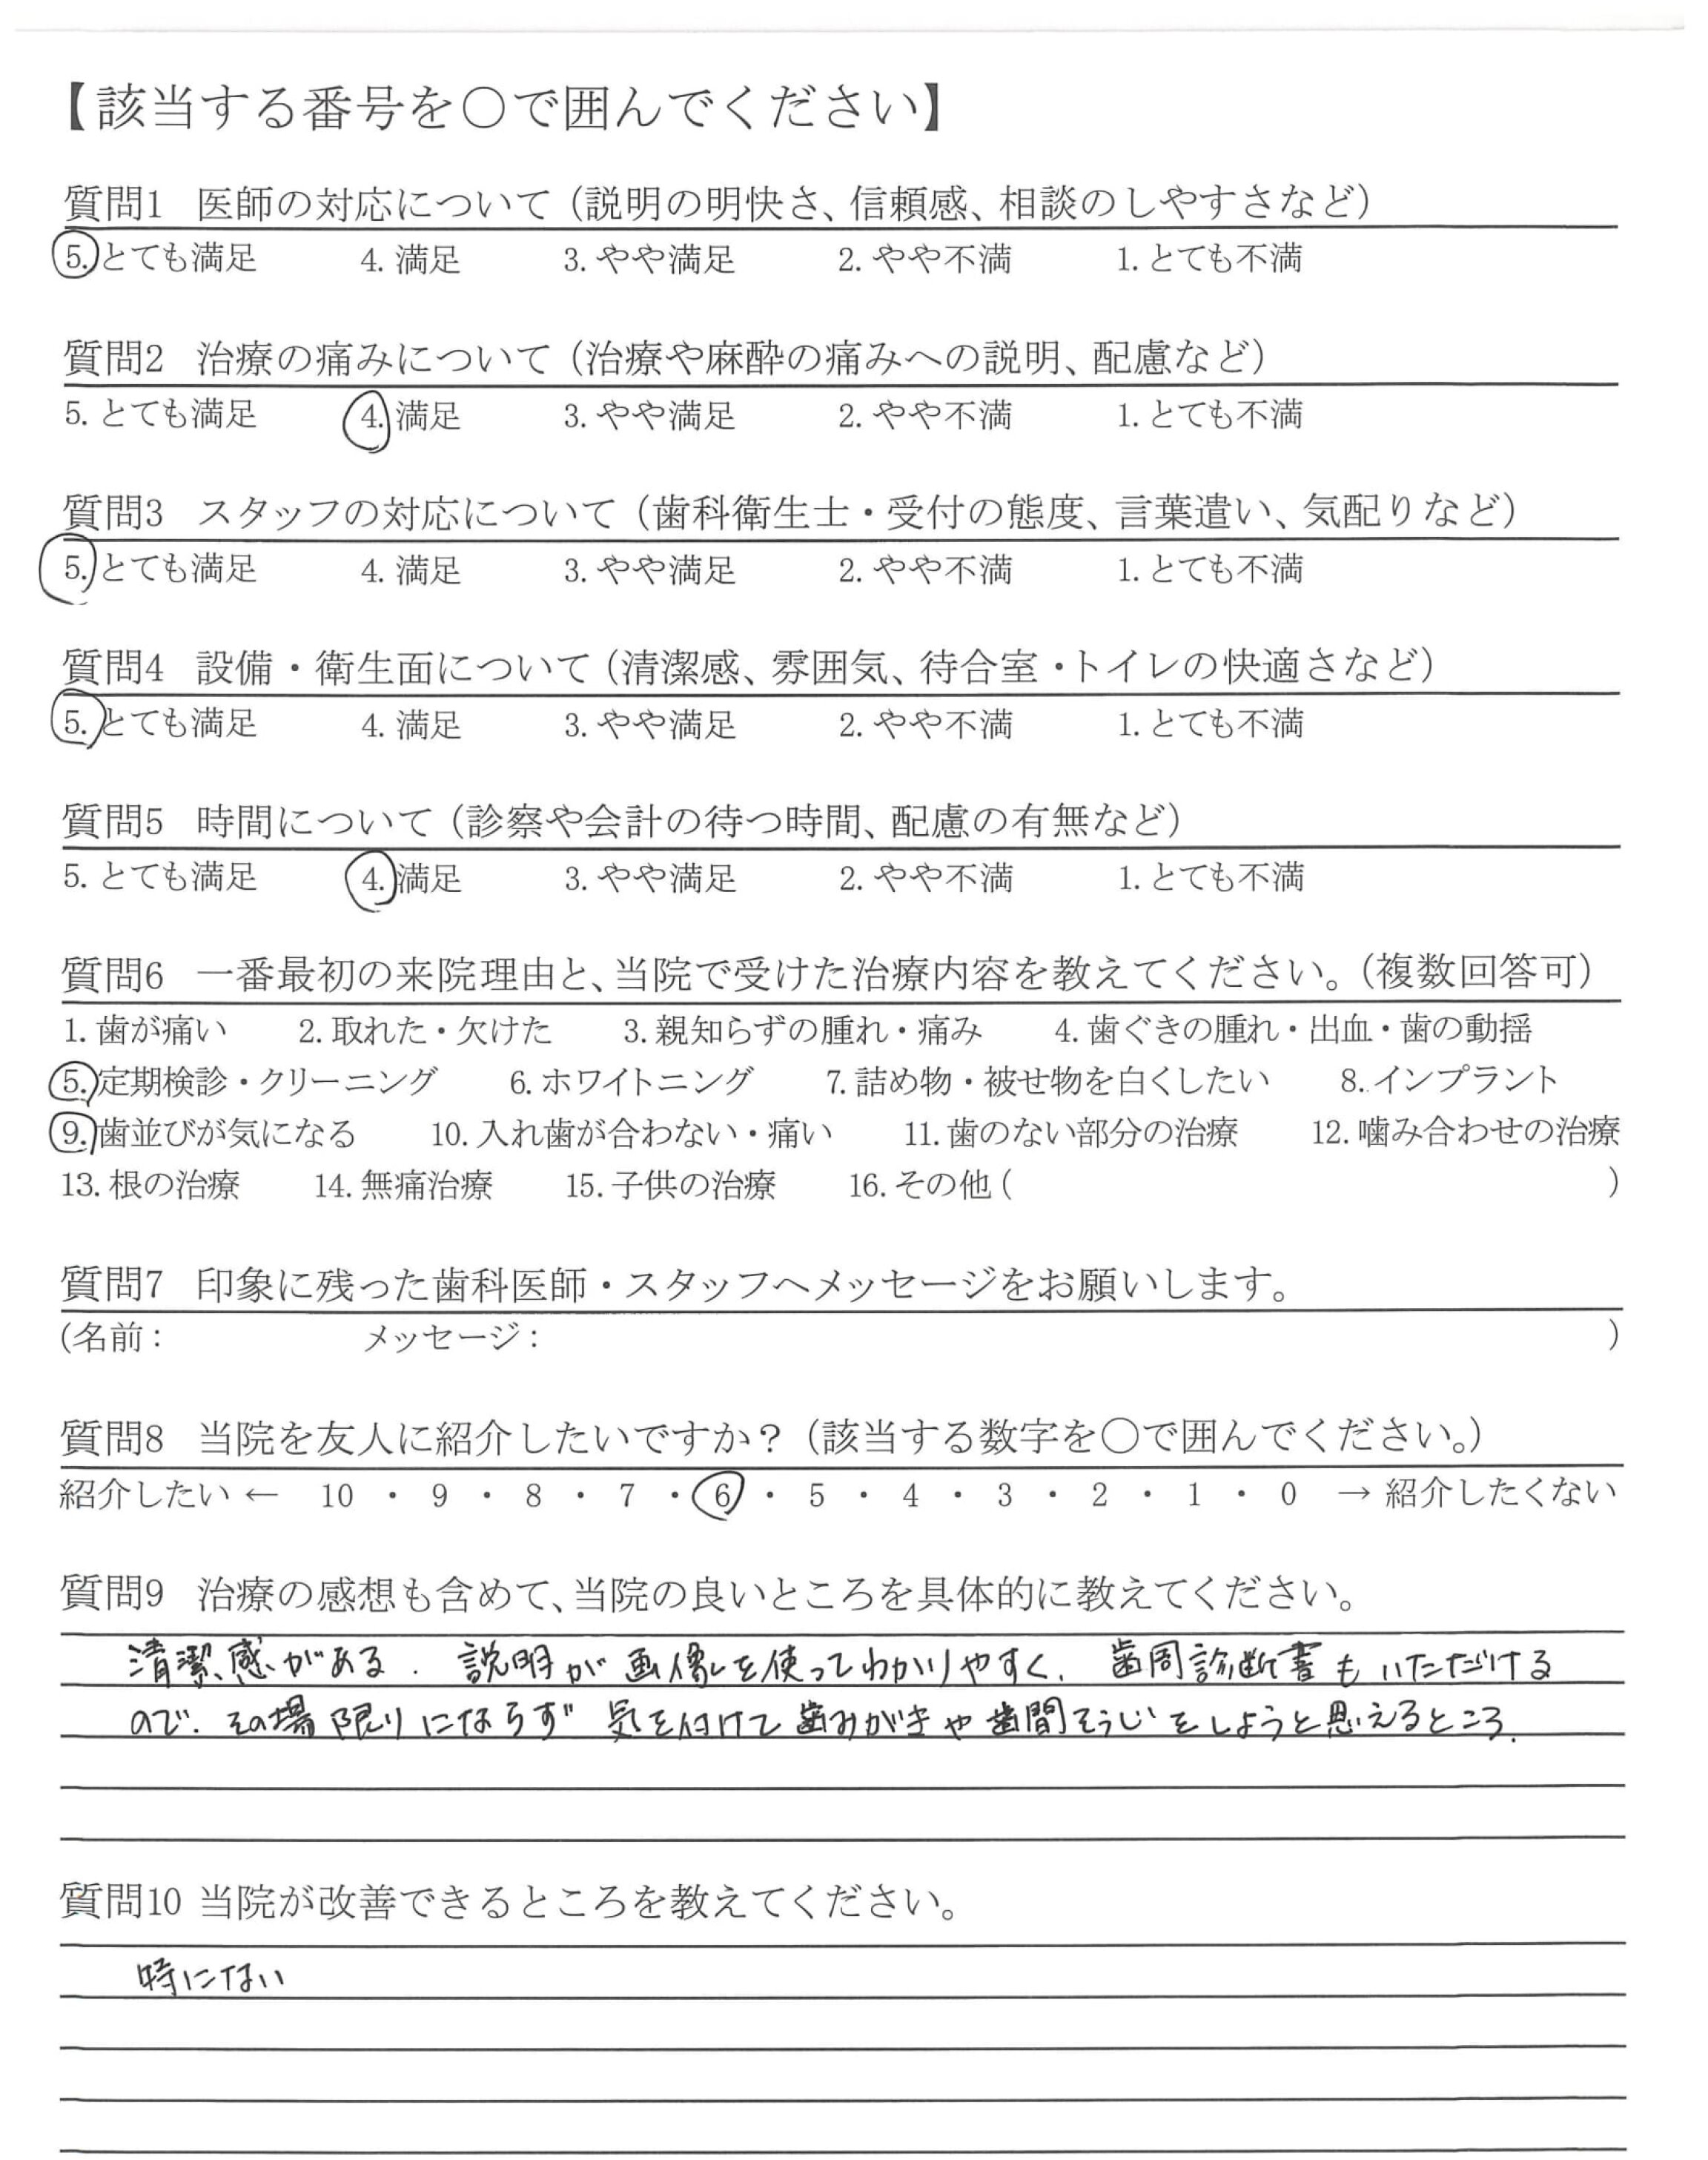 【該当する番号を○で囲んでください】
質問1 医師の対応について（説明の明快さ、信頼感、相談のしやすさなど）
5. とても満足 4. 満足 3. やや満足 2. やや不満 1. とても不満
質問2 治療の痛みについて（治療や麻酔の痛みへの説明、配慮など）
5. とても満足 4. 満足 3. やや満足 2. やや不満 1. とても不満
質問3 スタッフの対応について（歯科衛生士・受付の態度、言葉遣い、気配りなど）
5. とても満足 4. 満足 3. やや満足 2. やや不満 1. とても不満
質問4 設備・衛生面について（清潔感、雰囲気、待合室・トイレの快適さなど）
5. とても満足 4. 満足 3. やや満足 2. やや不満 1. とても不満
質問5 時間について（診察や会計の待つ時間、配慮の有無など）
5. とても満足 4. 満足 3. やや満足 2. やや不満 1. とても不満
質問6 一番最初の来院理由と、当院で受けた治療内容を教えてください。（複数回答可）
1. 歯が痛い 2. 取れた・欠けた 3. 親知らずの腫れ・痛み 4. 歯ぐきの腫れ・出血・歯の動揺
5. 定期検診・クリーニング 6. ホワイトニング 7. 詰め物・被せ物を白くしたい 8. インプラント
9. 歯並びが気になる 10. 入れ歯が合わない・痛い 11. 歯のない部分の治療 12. 噛み合わせの治療
13. 根の治療 14. 無痛治療 15. 子供の治療 16. その他（ ）
質問7 印象に残った歯科医師・スタッフへメッセージをお願いします。
（名前： メッセージ： ）
質問8 当院を友人に紹介したいですか？（該当する数字を○で囲んでください。）
紹介したい ← 10 ・ 9 ・ 8 ・ 7 ・ 6 ・ 5 ・ 4 ・ 3 ・ 2 ・ 1 ・ 0 → 紹介したくない
質問9 治療の感想も含めて、当院の良いところを具体的に教えてください。
清潔感がある. 説明が画像を使ってわかりやすく、歯周診断書もいただける
ので、その場限りにならず 気を付けて歯みがきや歯間そうじをしようと思えるところ.
質問10 当院が改善できるところを教えてください。
特にない